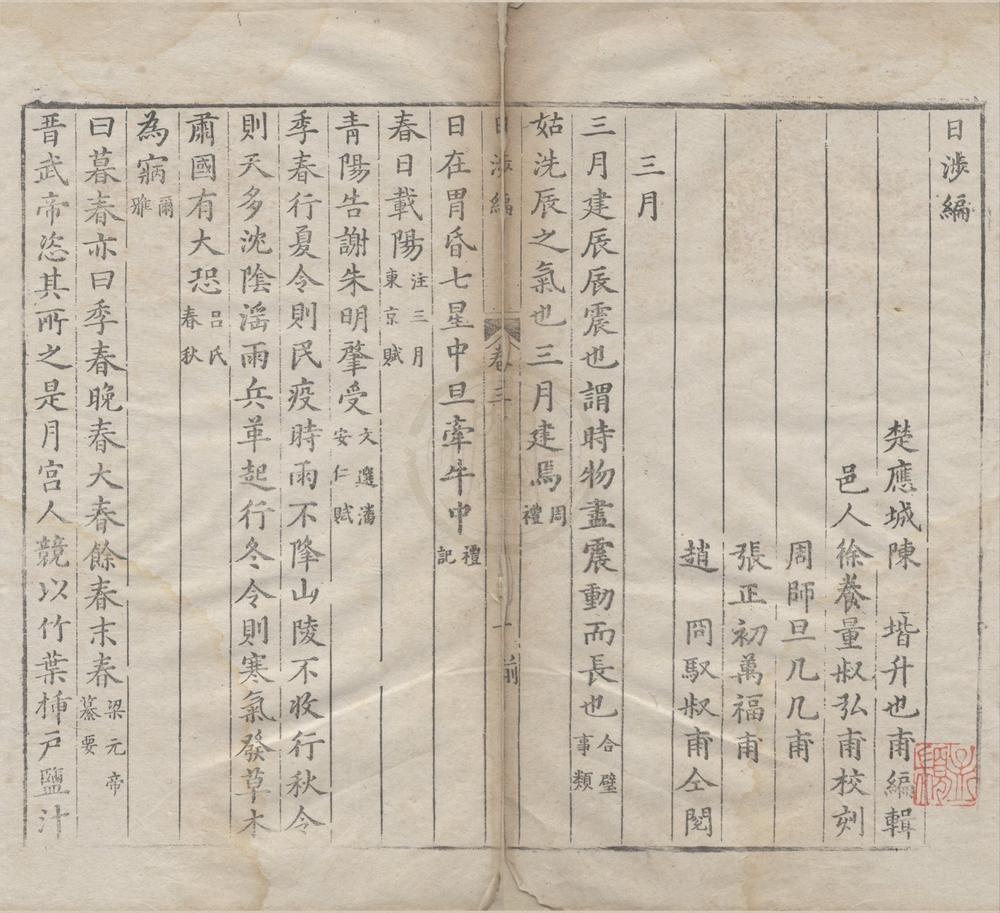 日涉編
楚應城陳 堦升也甫編輯
邑人徐養量叔弘甫校刻
周師旦几几甫
張正初萬福甫
趙 冏馭叔甫仝閱
三月
三月建辰辰震也謂時物盡震動而長也合璧事類
姑洗辰之氣也三月建焉周禮
日涉編 卷三 一 前
日在胃昏七星中旦牽牛中禮記
春日載陽注三月東京賦
青陽告謝朱明肇受文選潘安仁賦
季春行夏令則民疫時雨不降山陵不收行秋令
則天多沈陰滛雨兵革起行冬令則寒氣發草木
肅國有大恐呂氏春秋
為寎爾雅
曰暮春亦曰季春晚春大春餘春末春梁元帝纂要
晋武帝恣其所之是月宫人競以竹葉揷戸鹽汁